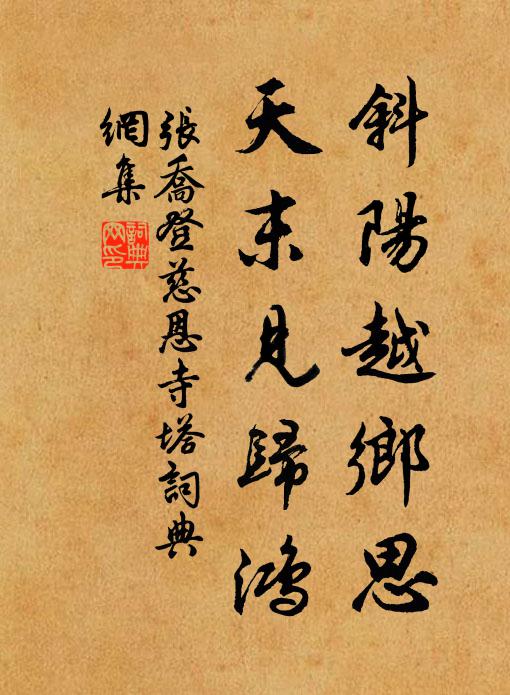 斜陽越鄉思
天末見歸鴻
張喬登慈恩寺塔詞典
網集
詞典
网印